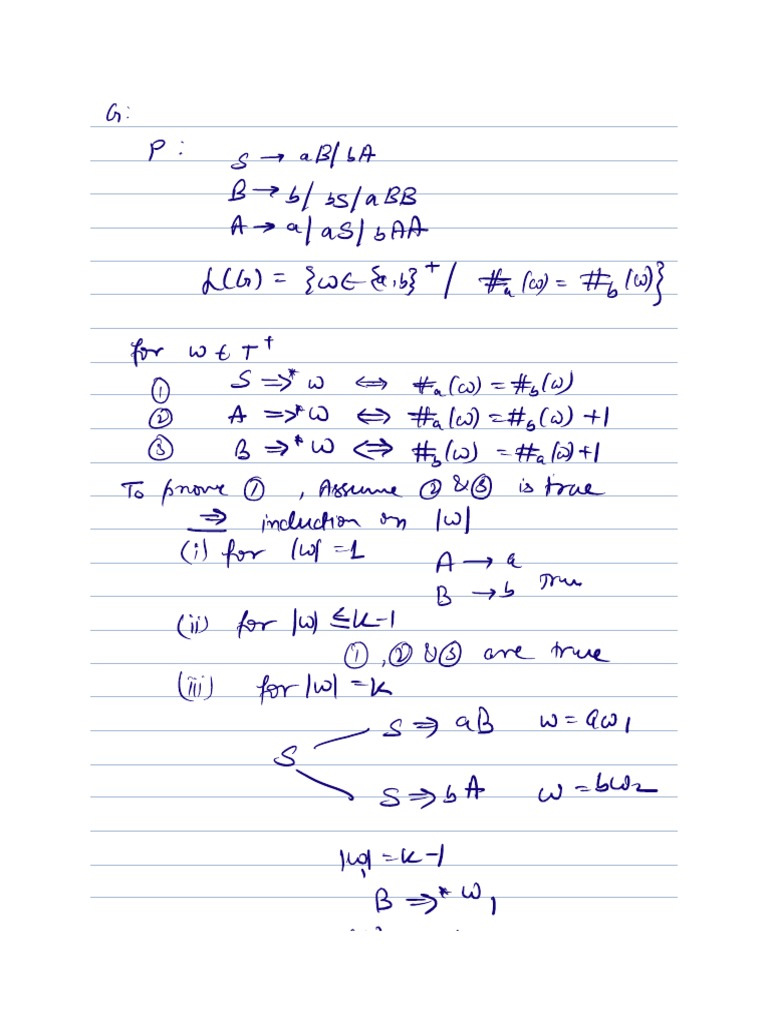 G:
P: S → aB/ bA
B → b/ bS/ aBB
A → a/ aS/ bAA
L(G) = {ω ∈ {a,b}⁺ / #a(ω) = #b(ω)}
for ω ∈ T⁺
① S ⇒* ω ⇔ #a(ω) = #b(ω)
② A ⇒* ω ⇔ #a(ω) = #b(ω) + 1
③ B ⇒* ω ⇔ #b(ω) = #a(ω) + 1
To prove ①, Assume ② & ③ is true
⇒ induction on |ω|
(i) for |ω| = 1 A → a
B → b True
(ii) for |ω| ≤ K-1
①, ② & ③ are true
(iii) for |ω| = K
S ⇒ aB ω = aω₁
S
S ⇒ bA ω = bω₂
|ω₁| = K-1
B ⇒* ω₁